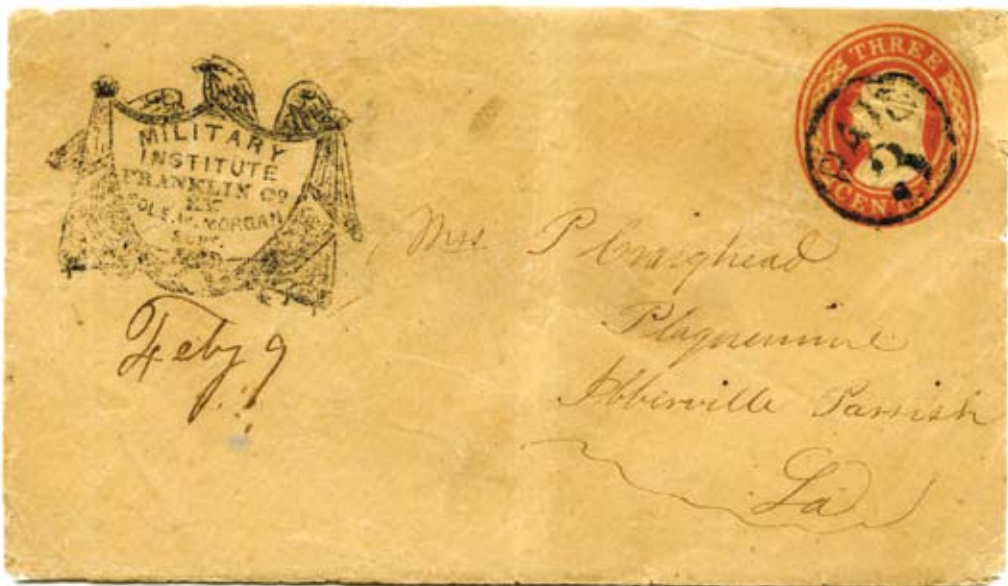 MILITARY
INSTITUTE
FRANKLIN CO
KY.
COL. E. W. MORGAN
SUPT.
THREE
PAID
3
CENTS
Feby 9
Mrs P Craighead
Plaquemine
Ibberville Parrish
La